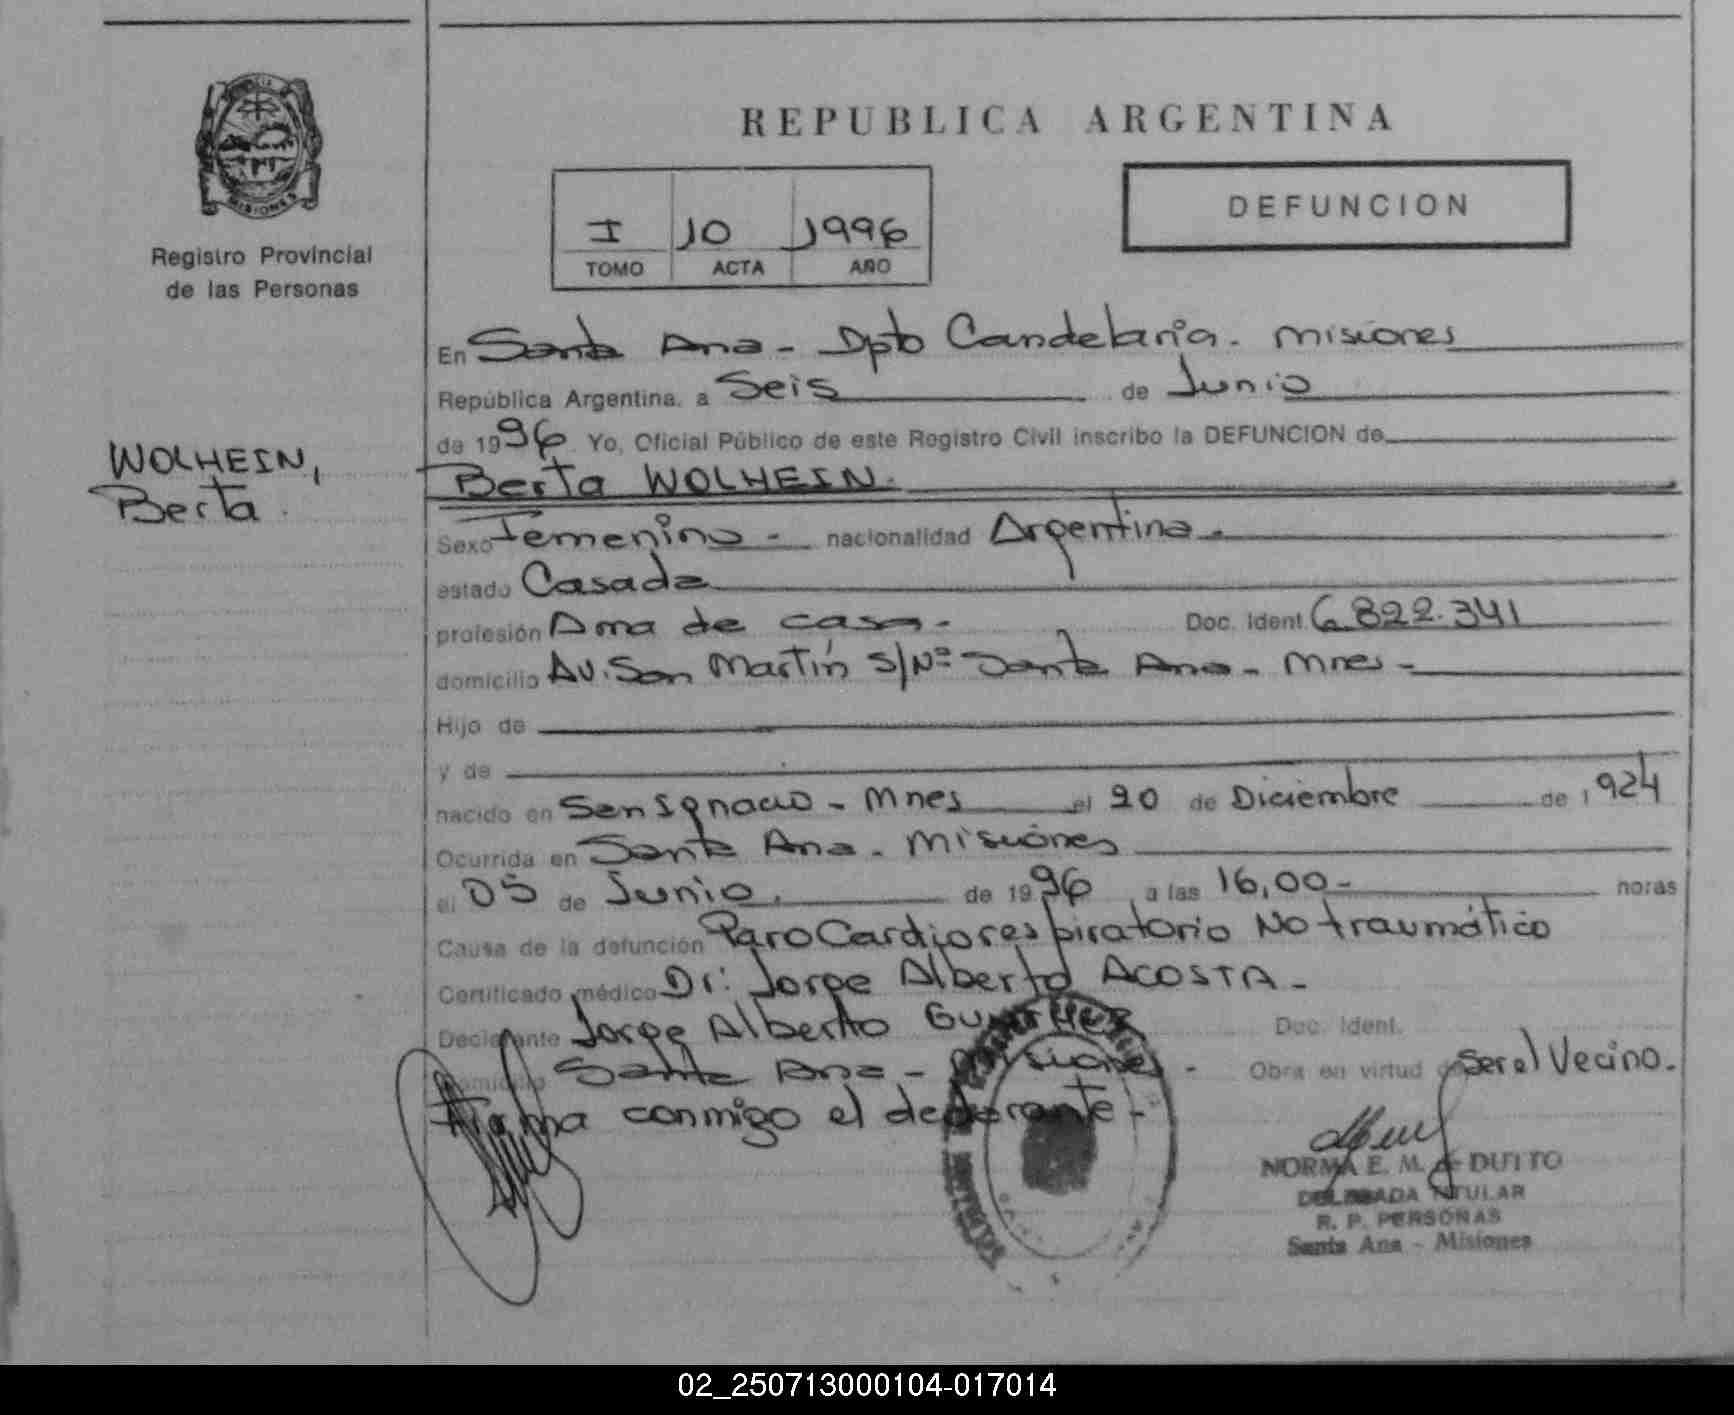 REPUBLICA ARGENTINA
PROVINCIA
MISIONES
Registro Provincial
de las Personas
I 10 1996
TOMO ACTA AÑO
DEFUNCION
En Santa Ana - Dpto Candelaria - Misiones
República Argentina, a Seis de Junio
de 1996 Yo, Oficial Público de este Registro Civil inscribo la DEFUNCION de
WOLHEIN,
Berta
Berta WOLHEIN.
Sexo Femenino - nacionalidad Argentina.
estado Casada
profesión Ama de casa. Doc. Ident. 6.822.341
domicilio Av. San Martín S/Nº Santa Ana - Mnes -
Hijo de
y de
nacido en San Ignacio - Mnes el 20 de Diciembre de 1924
Ocurrida en Santa Ana - Misiones
el 05 de Junio. de 1996 a las 16,00- horas
Causa de la defunción Paro Cardiorespiratorio No traumático
Certificado médico Dr: Jorge Alberto ACOSTA -
Declarante Jorge Alberto Doc. Ident.
domicilio Santa Ana - Misiones - Obra en virtud de Ser el Vecino.
Firma conmigo el declarante -
NORMA E. M. de
DELEGADA TITULAR
R. P. PERSONAS
Santa Ana - Misiones
02_250713000104-017014